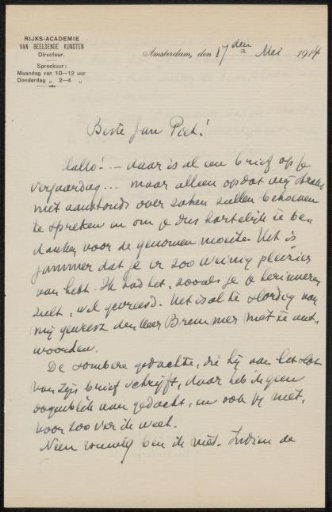 RIJKS-ACADEMIE
VAN BEELDENDE KUNSTEN
Directeur.
Spreekuur:
Maandag van 10–12 uur
Donderdag „ 2–4 „
Amsterdam, den 17den Mei 1914
Beste Jan Piet!
Hallo! — daar is al een brief op je
verjaardag — maar alleen opdat wij straks
niet aanstonds over zaken zullen behoeven
te spreken en om je dus hartelijk te be-
danken voor de genomen moeite. Het is
jammer dat je er zoo weinig pleizier
van hebt. Ik had het, zooals je je herinneren
zult, wel gevreesd. Het is al te slordig van
mij geweest den Heer Bremmer niet te ant-
woorden.
De sombere gedachte, die hij aan het slot
van zijn brief schrijft, daar heb ik geen
oogenblik aan gedacht, en ook hij niet,
voor zoover ik weet.
Neen rouwig ben ik niet. Indien de